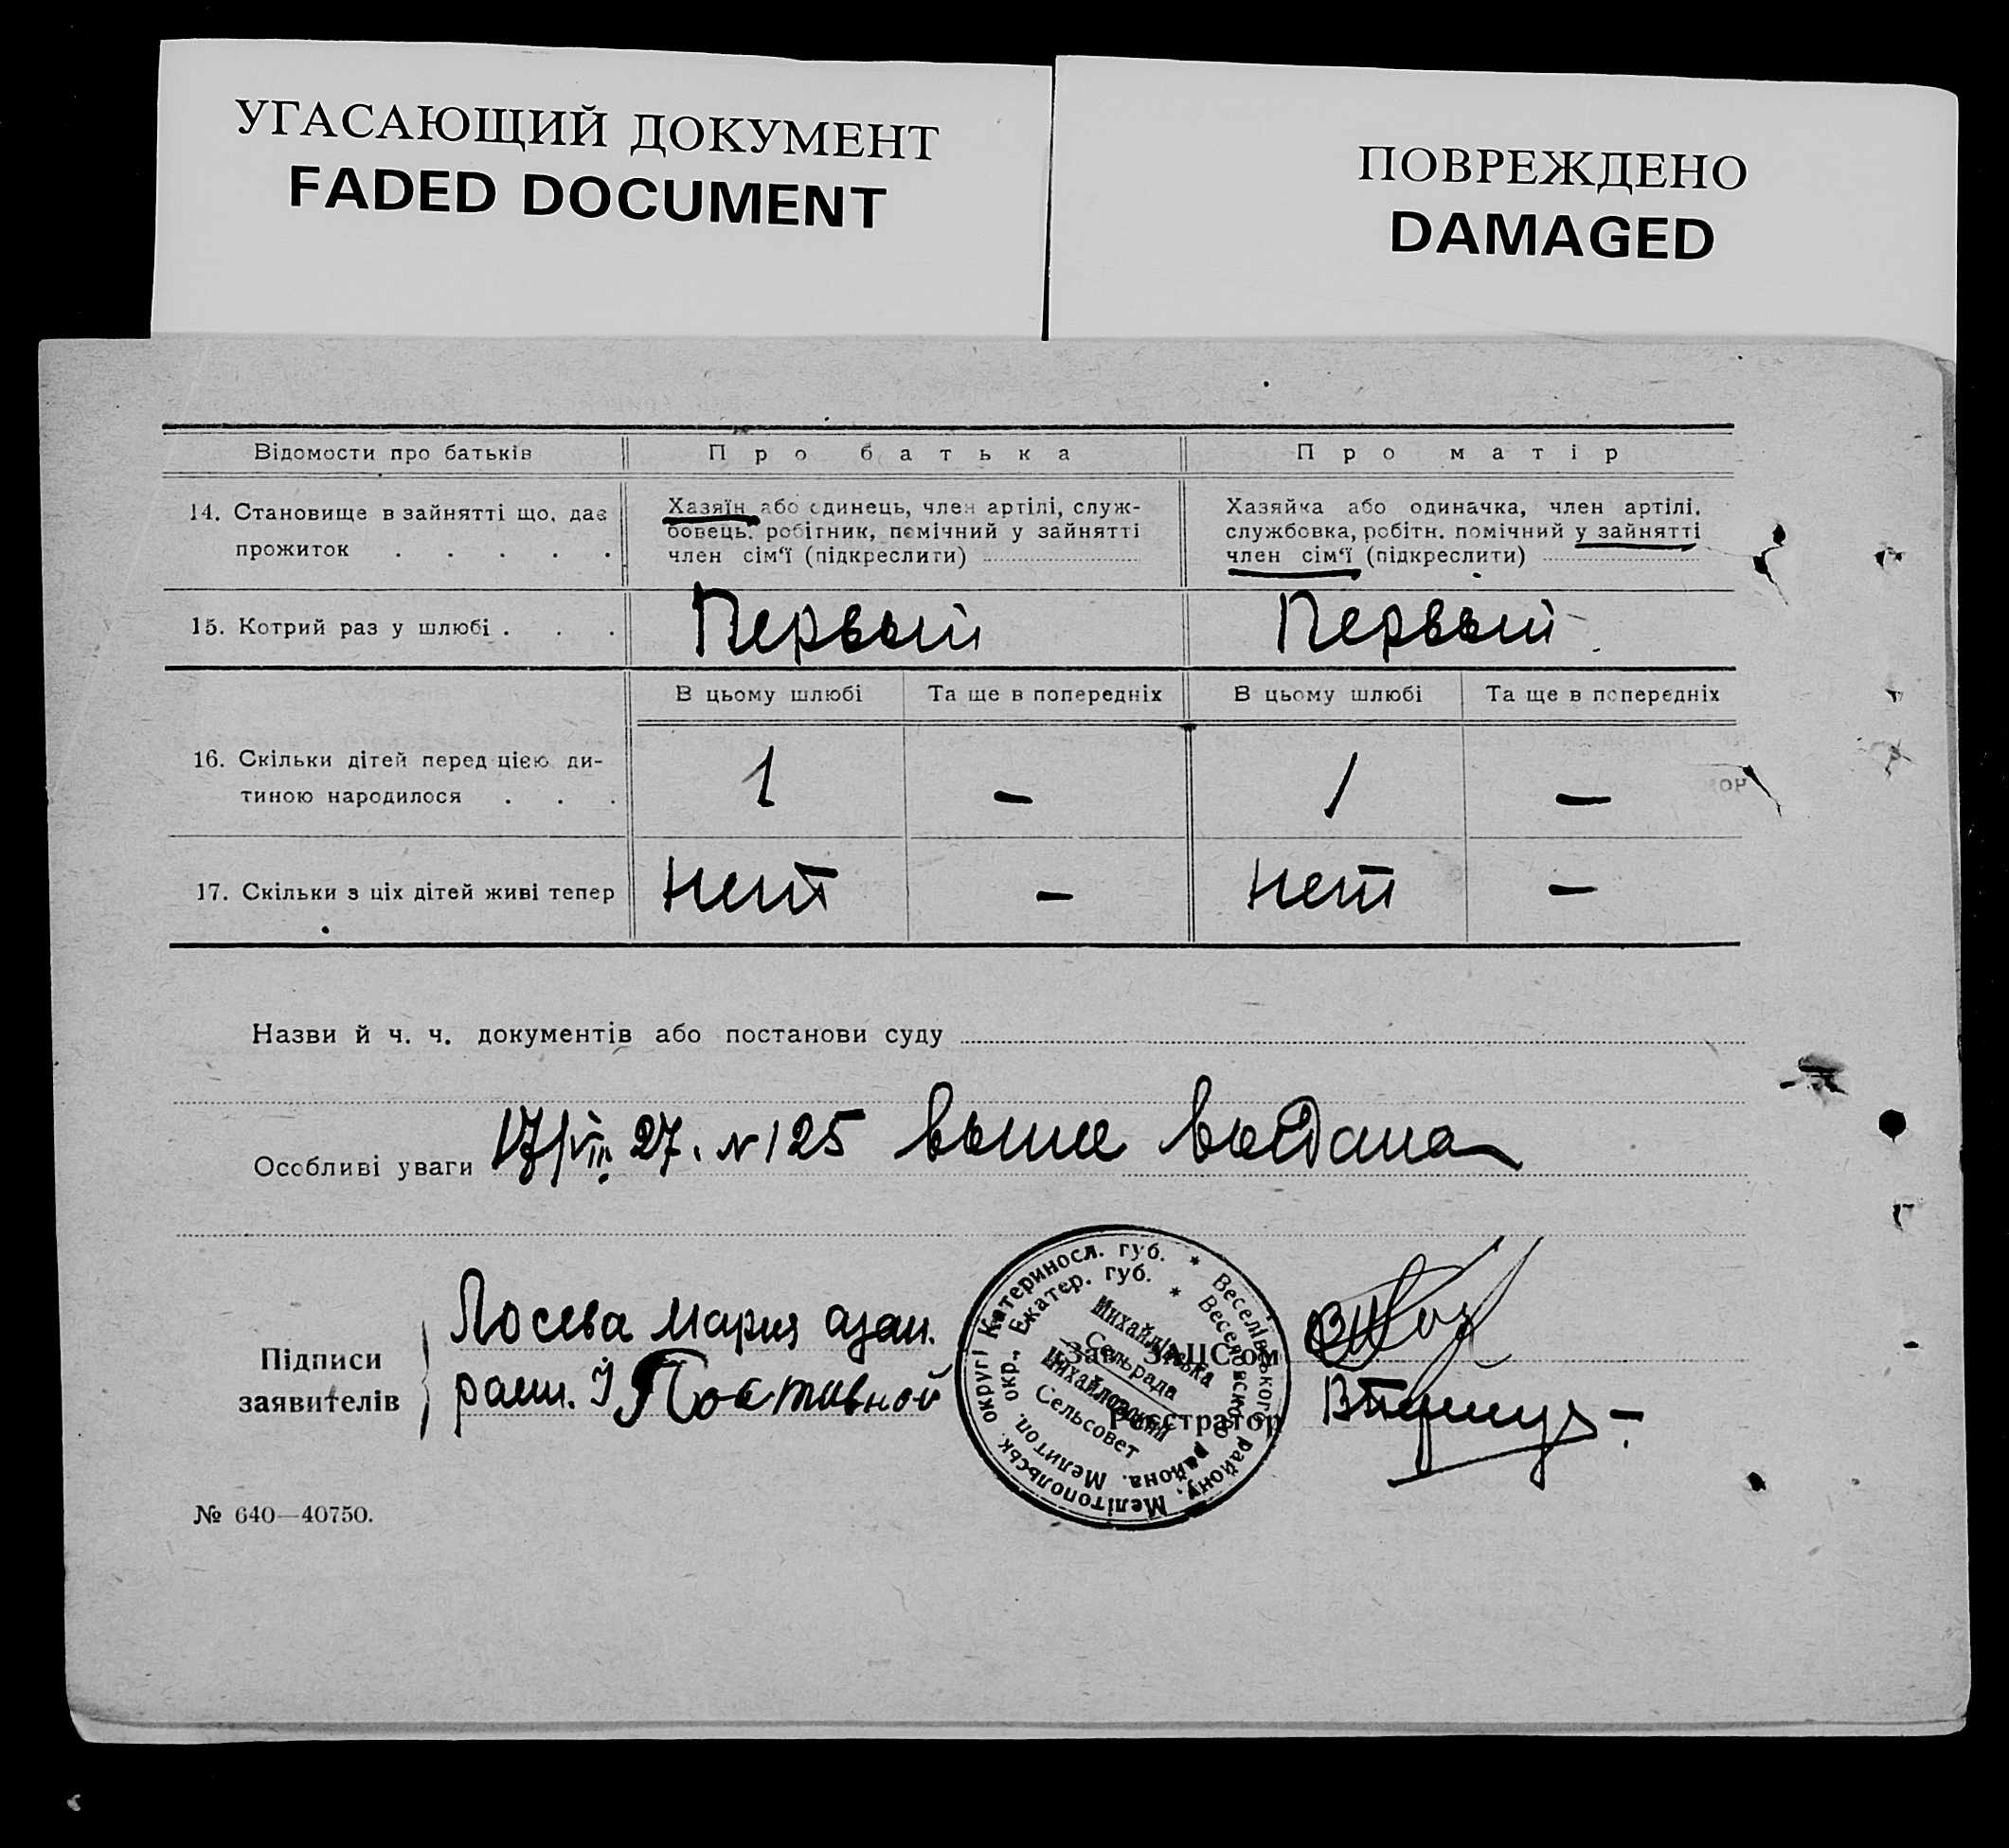 УГАСАЮЩИЙ ДОКУМЕНТ
FADED DOCUMENT
ПОВРЕЖДЕНО
DAMAGED
Відомости про батьків
Про батька
Про матір
14. Становище в зайнятті що, дає
прожиток . . . . .
Хазяїн або одинець, член артілі, служ-
бовець, робітник, помічний у зайнятті
член сім'ї (підкреслити)
Хазяйка або одиначка, член артілі,
службовка, робітн. помічний у зайнятті
член сім'ї (підкреслити)
15. Котрий раз у шлюбі . . .
Первый
Первый
В цьому шлюбі
Та ще в попередніх
В цьому шлюбі
Та ще в попередніх
16. Скільки дітей перед цією ди-
тиною народилося . . .
1
—
1
—
17. Скільки з ціх дітей живі тепер
нет
—
нет
—
Назви й ч. ч. документів або постанови суду
Особливі уваги 17/VIII 27. № 125
Підписи
заявителів
Лосева Мария
Зав. ЗАЦС'ом
Реєстратор
Веселівського району, Мелітопольськ. округі Катеринослав. губ.
Веселовского района. Мелитоп. окр., Екатер. губ.
Михайлівська
Сельрада
Михайловский
Сельсовет
№ 640—40750.